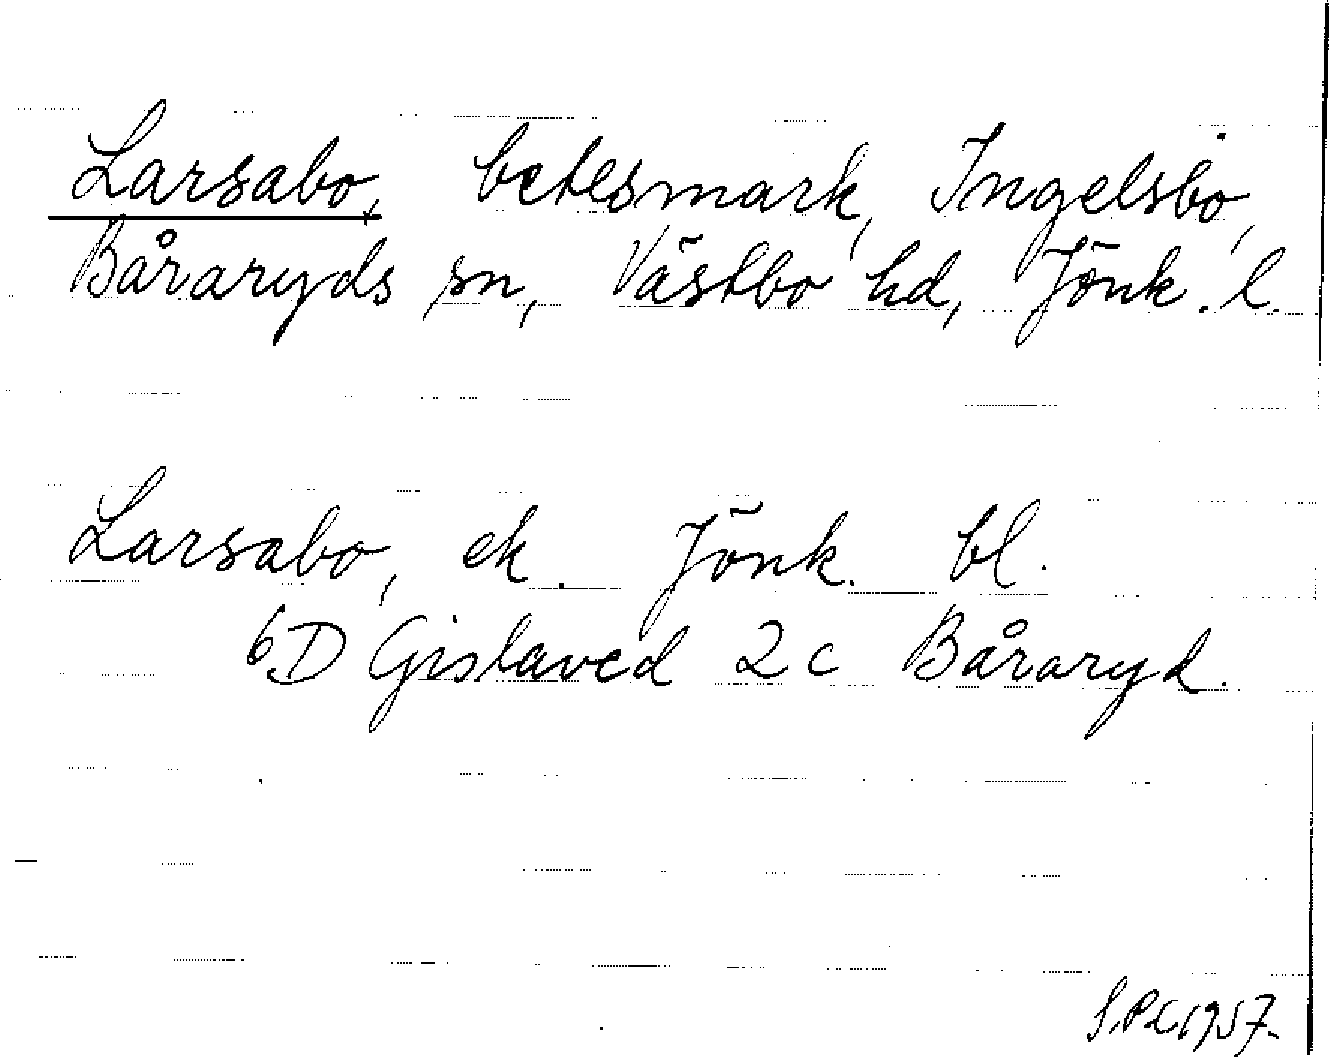 Larsabo, betesmark, Ingelsbo,
Båraryds sn, Västbo hd, Jönk. l.
Larsabo, ek. Jönk. bl.
6D Gislaved 2c Båraryd.
1957.